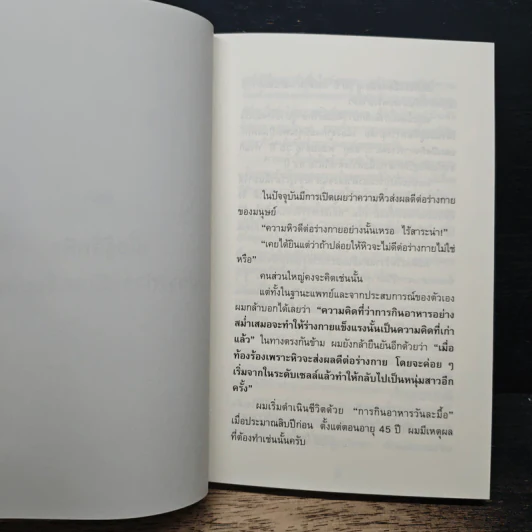 ในปัจจุบันมีการเปิดเผยว่าความหิวส่งผลดีต่อร่างกาย
ของมนุษย์
“ความหิวดีต่อร่างกายอย่างนั้นเหรอ ไร้สาระน่า!”
“เคยได้ยินแต่ว่าถ้าปล่อยให้หิวจะไม่ดีต่อร่างกายไม่ใช่
หรือ”
คนส่วนใหญ่คงจะคิดเช่นนั้น
แต่ทั้งในฐานะแพทย์และจากประสบการณ์ของตัวเอง
ผมกล้าบอกได้เลยว่า “ความคิดที่ว่าการกินอาหารอย่าง
สม่ำเสมอจะทำให้ร่างกายแข็งแรงนั้นเป็นความคิดที่เก่า
แล้ว” ในทางตรงกันข้าม ผมยังกล้ายืนยันอีกด้วยว่า “เมื่อ
ท้องร้องเพราะหิวจะส่งผลดีต่อร่างกาย โดยจะค่อย ๆ
เริ่มจากในระดับเซลล์แล้วทำให้กลับไปเป็นหนุ่มสาวอีก
ครั้ง”
ผมเริ่มดำเนินชีวิตด้วย “การกินอาหารวันละมื้อ”
เมื่อประมาณสิบปีก่อน ตั้งแต่ตอนอายุ 45 ปี ผมมีเหตุผล
ที่ต้องทำเช่นนั้นครับ